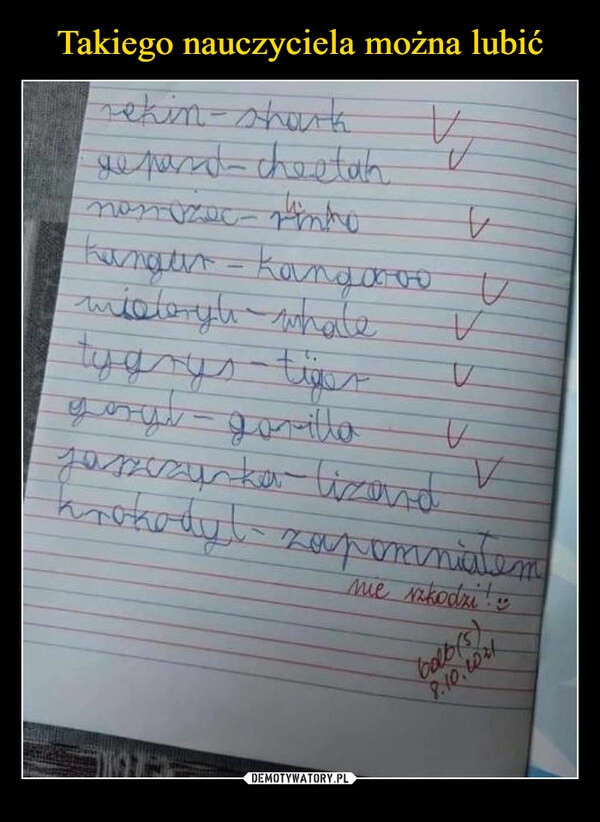 Takiego nauczyciela można lubić
rekin - shark V
gepard - cheetah V
hi
nosrożec - rinho V
kangur - kangaroo V
wieloryb - whale V
tygrys - tiger V
goryl - gorilla V
jaszczurka - lizard V
krokodyl - zapomniałem
nie szkodzi! ☺
bdb (5)
8.10.2021
DEMOTYWATORY.PL